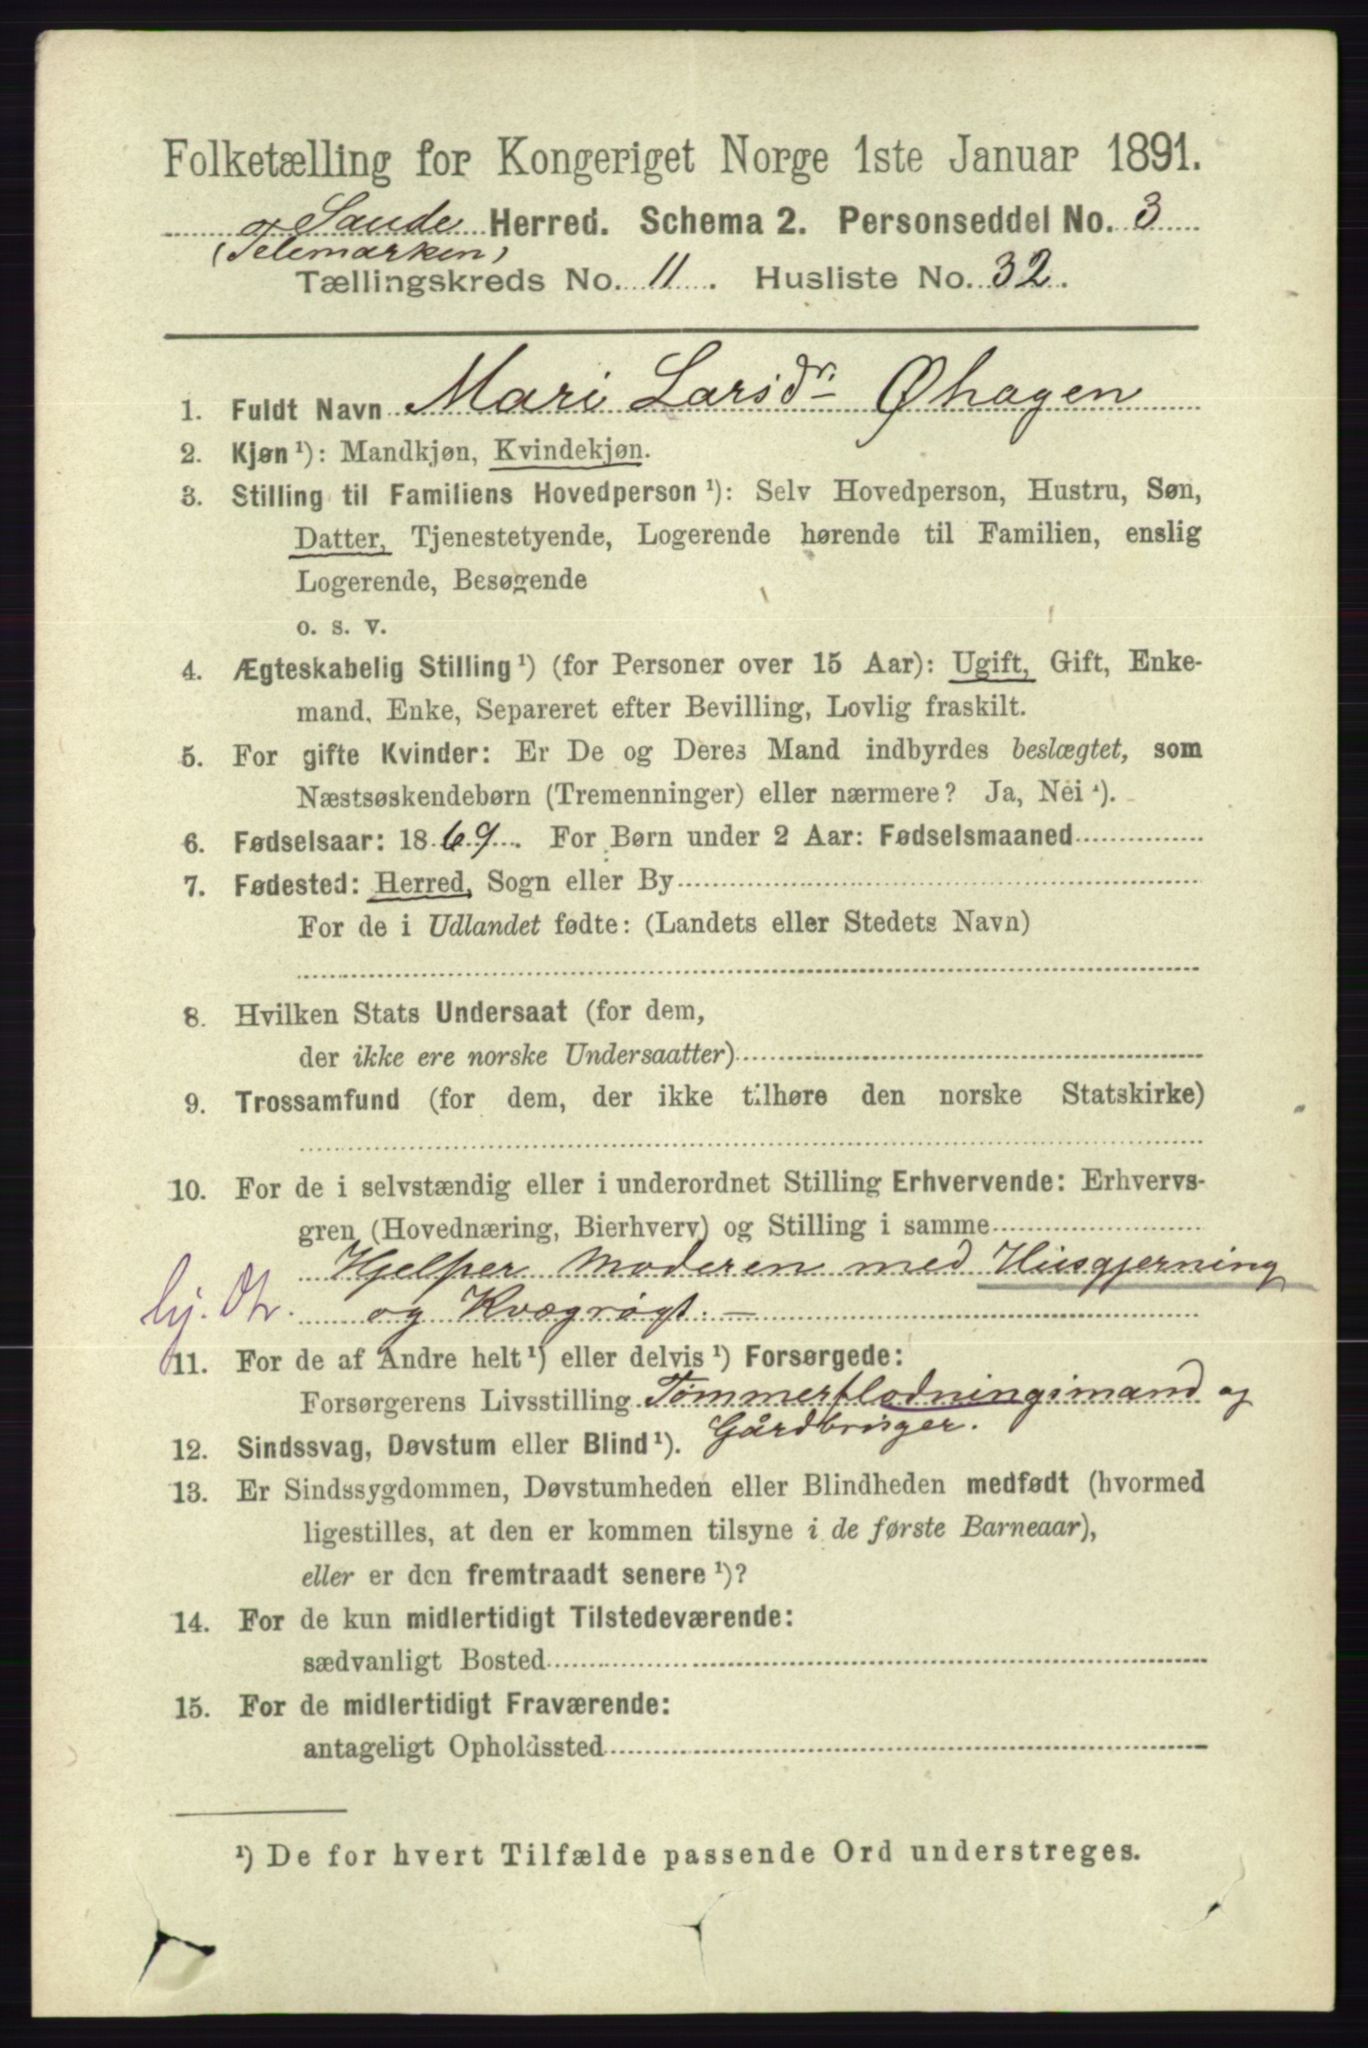 Folketælling for Kongeriget Norge 1ste Januar 1891.
Saude Herred. Schema 2. Personseddel No. 3
(Telemarken)
Tællingskreds No. 11. Husliste No. 32.
1. Fuldt Navn Mari Larsdr. Øhagen
2. Kjøn¹): Mandkjøn, Kvindekjøn.
3. Stilling til Familiens Hovedperson¹): Selv Hovedperson, Hustru, Søn,
Datter, Tjenestetyende, Logerende hørende til Familien, enslig
Logerende, Besøgende
o. s. v.
4. Ægteskabelig Stilling¹) (for Personer over 15 Aar): Ugift, Gift, Enke-
mand, Enke, Separeret efter Bevilling, Lovlig fraskilt.
5. For gifte Kvinder: Er De og Deres Mand indbyrdes beslægtet, som
Næstsøskendebørn (Tremenninger) eller nærmere? Ja, Nei ¹).
6. Fødselsaar: 1869. For Børn under 2 Aar: Fødselsmaaned
7. Fødested: Herred, Sogn eller By
For de i Udlandet fødte: (Landets eller Stedets Navn)
8. Hvilken Stats Undersaat (for dem,
der ikke ere norske Undersaatter)
9. Trossamfund (for dem, der ikke tilhøre den norske Statskirke)
10. For de i selvstændig eller i underordnet Stilling Erhvervende: Erhvervs-
gren (Hovednæring, Bierhverv) og Stilling i samme
Hjelper Moderen med Husgjerning
hj. Dtr. og Kvægrøgt. —
11. For de af Andre helt¹) eller delvis¹) Forsørgede:
Forsørgerens Livsstilling Tømmerflodningsmand og
Gårdbruger.
12. Sindssvag, Døvstum eller Blind¹).
13. Er Sindssygdommen, Døvstumheden eller Blindheden medfødt (hvormed
ligestilles, at den er kommen tilsyne i de første Barneaar),
eller er den fremtraadt senere ¹)?
14. For de kun midlertidigt Tilstedeværende:
sædvanligt Bosted
15. For de midlertidigt Fraværende:
antageligt Opholdssted
¹) De for hvert Tilfælde passende Ord understreges.